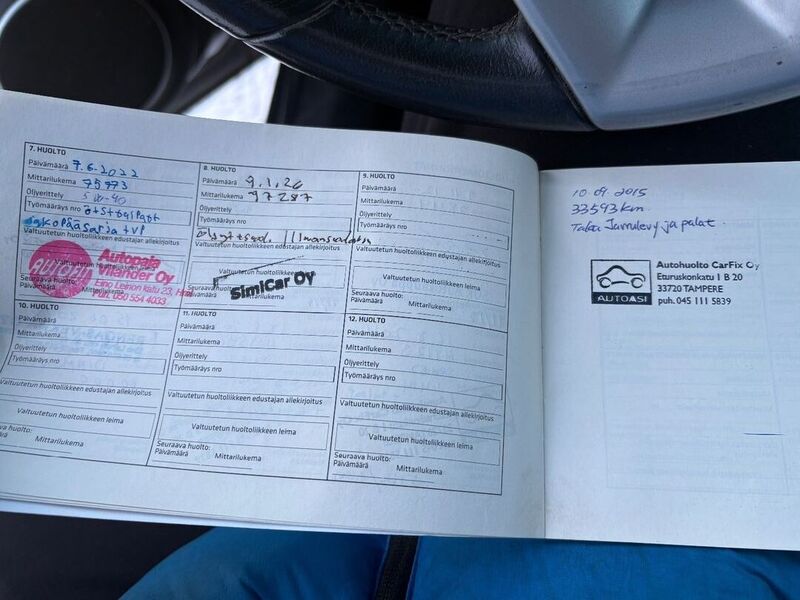 7. HUOLTO
Päivämäärä 7.6-2022
Mittarilukema 75973
Öljyerittely 5W-40
Työmääräys nro
Jakopääsarja + VP
Valtuutetun huoltoliikkeen edustajan allekirjoitus
AUTOFIT
Autopaja
Vilander Oy
Eino Leinon katu 23,
Puh. 050 554 4033
8. HUOLTO
Päivämäärä 9.1.24
Mittarilukema 97287
Öljyerittely
Työmääräys nro
Valtuutetun huoltoliikkeen edustajan allekirjoitus
Valtuutetun huoltoliikkeen
SimiCar Oy
Seuraava huolto:
Päivämäärä Mittarilukema
9. HUOLTO
Päivämäärä
Mittarilukema
Öljyerittely
Työmääräys nro
Valtuutetun huoltoliikkeen edustajan allekirjoitus
Valtuutetun huoltoliikkeen leima
Seuraava huolto:
Päivämäärä Mittarilukema
10. HUOLTO
Päivämäärä
Mittarilukema
Öljyerittely
Työmääräys nro
Valtuutetun huoltoliikkeen edustajan allekirjoitus
Valtuutetun huoltoliikkeen leima
huolto:
Mittarilukema
11. HUOLTO
Päivämäärä
Mittarilukema
Öljyerittely
Työmääräys nro
Valtuutetun huoltoliikkeen edustajan allekirjoitus
Valtuutetun huoltoliikkeen leima
Seuraava huolto:
Päivämäärä Mittarilukema
12. HUOLTO
Päivämäärä
Mittarilukema
Öljyerittely
Työmääräys nro
Valtuutetun huoltoliikkeen edustajan allekirjoitus
Valtuutetun huoltoliikkeen leima
Seuraava huolto:
Päivämäärä Mittarilukema
10.09.2015
33593km
Taka Jarrulevy ja palat.
AUTOASI
Autohuolto CarFix Oy
Eturuskonkatu 1 B 20
33720 TAMPERE
puh. 045 111 5839